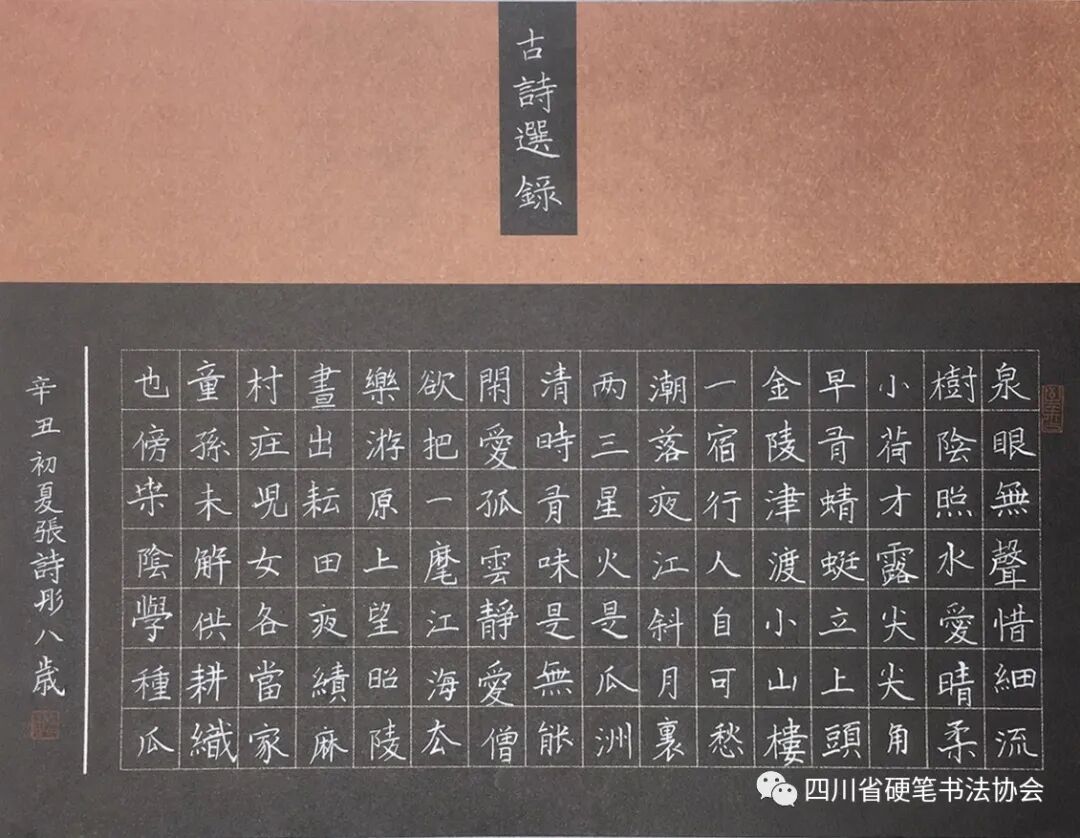 古詩選錄
泉眼無聲惜細流
樹陰照水愛晴柔
小荷才露尖尖角
早有蜻蜓立上頭
金陵津渡小山樓
一宿行人自可愁
潮落夜江斜月裏
两三星火是瓜洲
清時有味是無能
閑愛孤雲靜愛僧
欲把一麾江海去
樂游原上望昭陵
晝出耘田夜績麻
村庄兒女各當家
童孫未解供耕織
也傍桒陰學種瓜
辛丑初夏張詩彤八歲
四川省硬笔书法协会